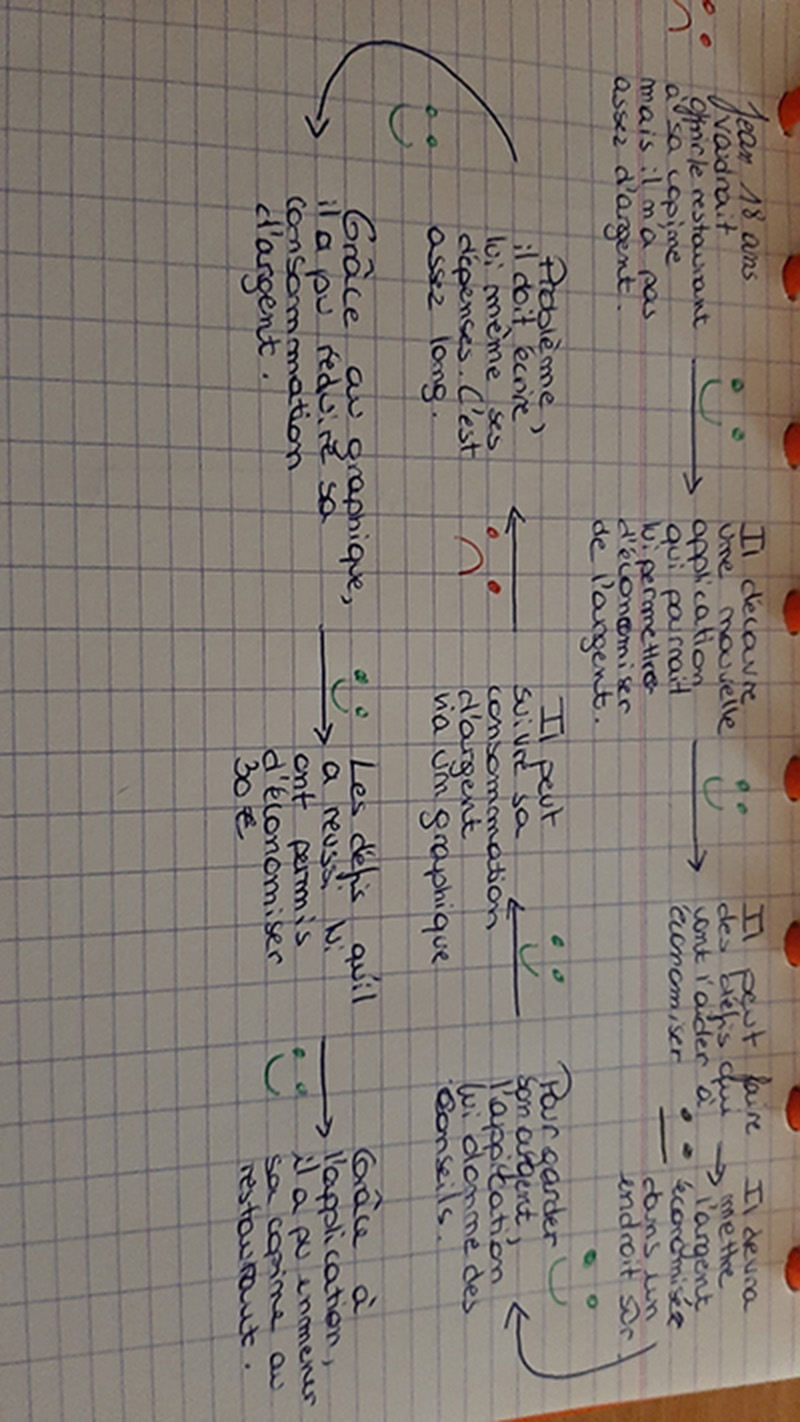 Jean 18 ans
voudrait
offrir le restaurant
à sa copine
mais il n'a pas
assez d'argent.
Il découvre
une nouvelle
application
qui pourrait
lui permettre
d'économiser
de l'argent.
Il peut faire
des défis qui
vont l'aider à
économiser
Il devra
mettre
l'argent
économisée
dans un
endroit sûr
Pour garder
son argent,
l'application
lui donne des
conseils.
Il peut
suivre sa
consommation
d'argent
via un graphique
Problème,
il doit écrire
lui même ses
dépenses. C'est
assez long.
Grâce au graphique,
il a pu réduire sa
consommation
d'argent.
Les défis qu'il
a reussi lui
ont permis
d'économiser
30 €
Grâce à
l'application,
il a pu emmener
sa copine au
restaurant.